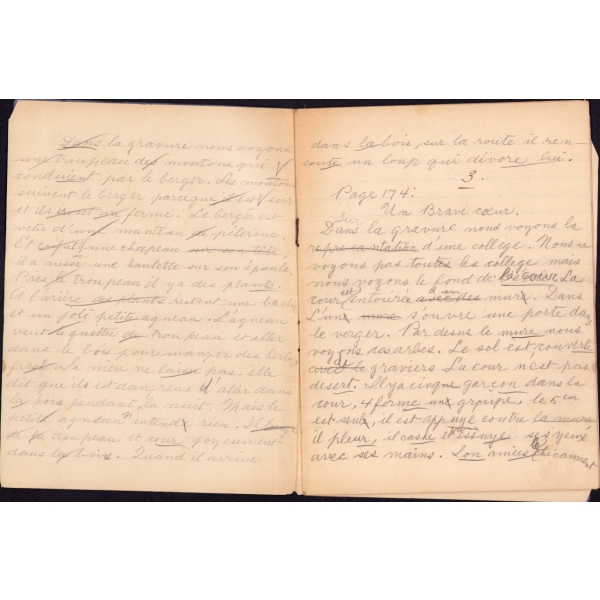 Dans la gravure nous voyons
une troupeau des montons qui
conduient par le berger. Les montons
suivent le berger parceque il est soir
et ils iront au ferme. Le berger est
vete d'un manteau de pèterine.
Et coifut une chapeau sur son tête,
il a aussi une houlette sur son épaule.
Près le troupeau il ya des plants.
A l'arière des plants restent une
et un joli petite agneau. L'agneau
veut le quitte de troupeau et aller
dans le bois pour manger des herbe
La mère ne pas, elle
dit que ils est dangreux d'aller dans
la bois pendant la nuit. Mais le
petite agneau n'intend rien. Il
de sa troupeau et cour
dans la bois. Quand il arrive
dans la bois, sur la route il ren-
contre un loup qui dévore lui.
3.
Page 174.
Un Brave cœur.
Dans la gravure nous voyons la
represantation d'une college. Nous ne
voyons pas toute les college mais
nous voyons le fond de cour. La
cour est entourée avec des un mure. Dans
L'une mure s'ouvre une porte dans
le verger. Par desus le mure nous
voyons des arbes. Le sol est, couverte
avec le graviers. La cour n'est pas
desert. Il ya cinque garçon dans la
cour, 4 forme un groupé, le 5 em
est seule, il est appuyé contre la mure
il pleur, il cashe et essuyé ses yeux
avec ses mains. Son amies chicannent